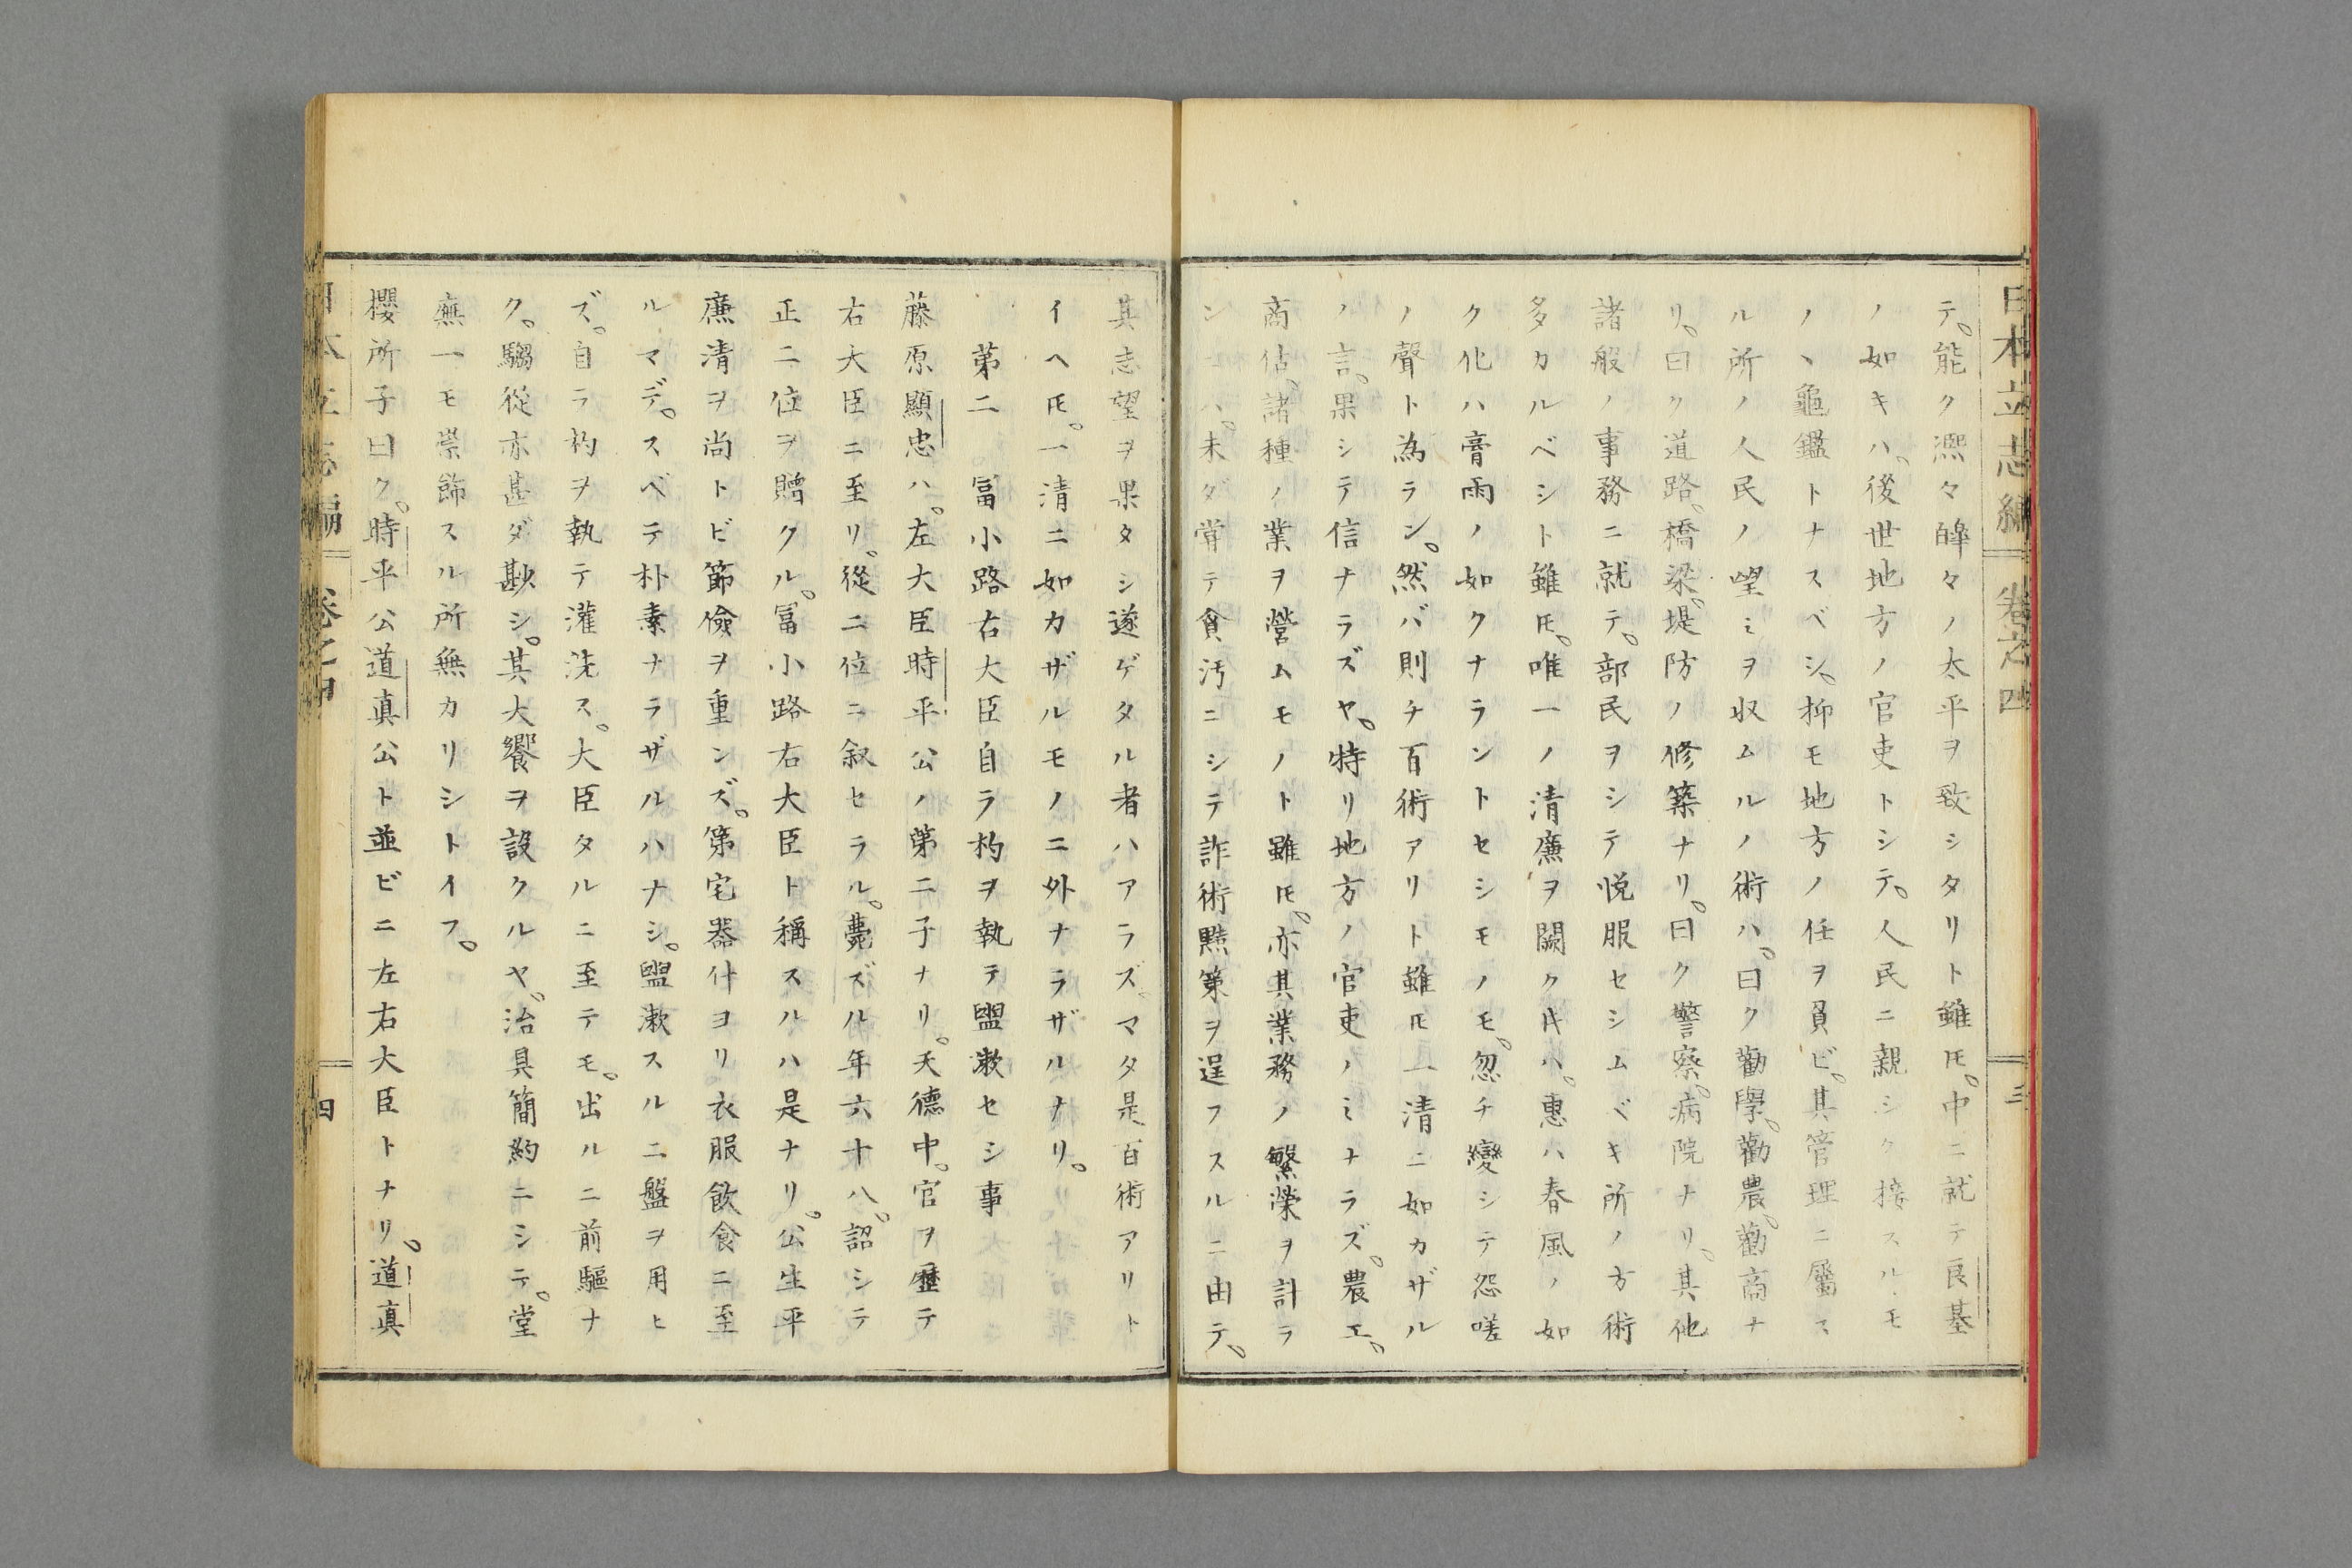 日本立志編 卷之四 三
テ。能ク凞々皥々ノ太平ヲ致シタリト雖𪜈。中ニ就テ良基
ノ如キハ。後世地方ノ官吏トシテ。人民ニ親シク接スルモ
ノヽ龜鑑トナスベシ。抑モ地方ノ任ヲ負ビ。其管理ニ屬ス
ル所ノ人民ノ望ミヲ収ムルノ術ハ。曰ク勸學。勸農。勸商ナ
リ。曰ク道路。橋梁。堤防ノ修築ナリ。曰ク警察。病院ナリ。其他
諸般ノ事務ニ就テ。部民ヲシテ悦服セシムベキ所ノ方術
多カルベシト雖𪜈。唯一ノ清廉ヲ闕ク片ハ。惠ハ春風ノ如
ク化ハ膏雨ノ如クナラントセシモノモ。忽チ變シテ怨嗟
ノ聲ト為ラン。然バ則チ百術アリト雖𪜈一清ニ如カザル
ノ言。果シテ信ナラズヤ。特リ地方ノ官吏ノミナラズ。農工。
商估。諸種ノ業ヲ營ムモノト雖𪜈。亦其業務ノ繁榮ヲ計ラ
ンニハ。未ダ甞テ貪汚ニシテ詐術黠策ヲ逞フスルニ由テ。
其志望ヲ果タシ遂ゲタル者ハアラズ。マタ是百術アリト
イヘ𪜈。一清ニ如カザルモノニ外ナラザルナリ。
第二 冨小路右大臣自ラ杓ヲ執テ盥漱セシ事
藤原顯忠ハ。左大臣時平公ノ第二子ナリ。天德中。官ヲ歷テ
右大臣ニ至リ。從二位ニ叙セラル。薨ズル年六十八。詔シテ
正二位ヲ贈クル。冨小路右大臣ト稱スルハ是ナリ。公生平
廉清ヲ尚トビ節儉ヲ重ンズ。第宅器什ヨリ衣服飲食ニ至
ルマデ。スベテ朴素ナラザルハナシ。盥漱スルニ盤ヲ用ヒ
ズ。自ラ杓ヲ執テ灌洗ス。大臣タルニ至テモ。出ルニ前驅ナ
ク。騶從亦甚ダ尠シ。其大饗ヲ設クルヤ。治具簡約ニシテ。堂
無一モ崇飾スル所無カリシトイフ。
櫻所子曰ク。時平公道真公ト並ビニ左右大臣トナリ。道真
日本立志編 卷之四 四